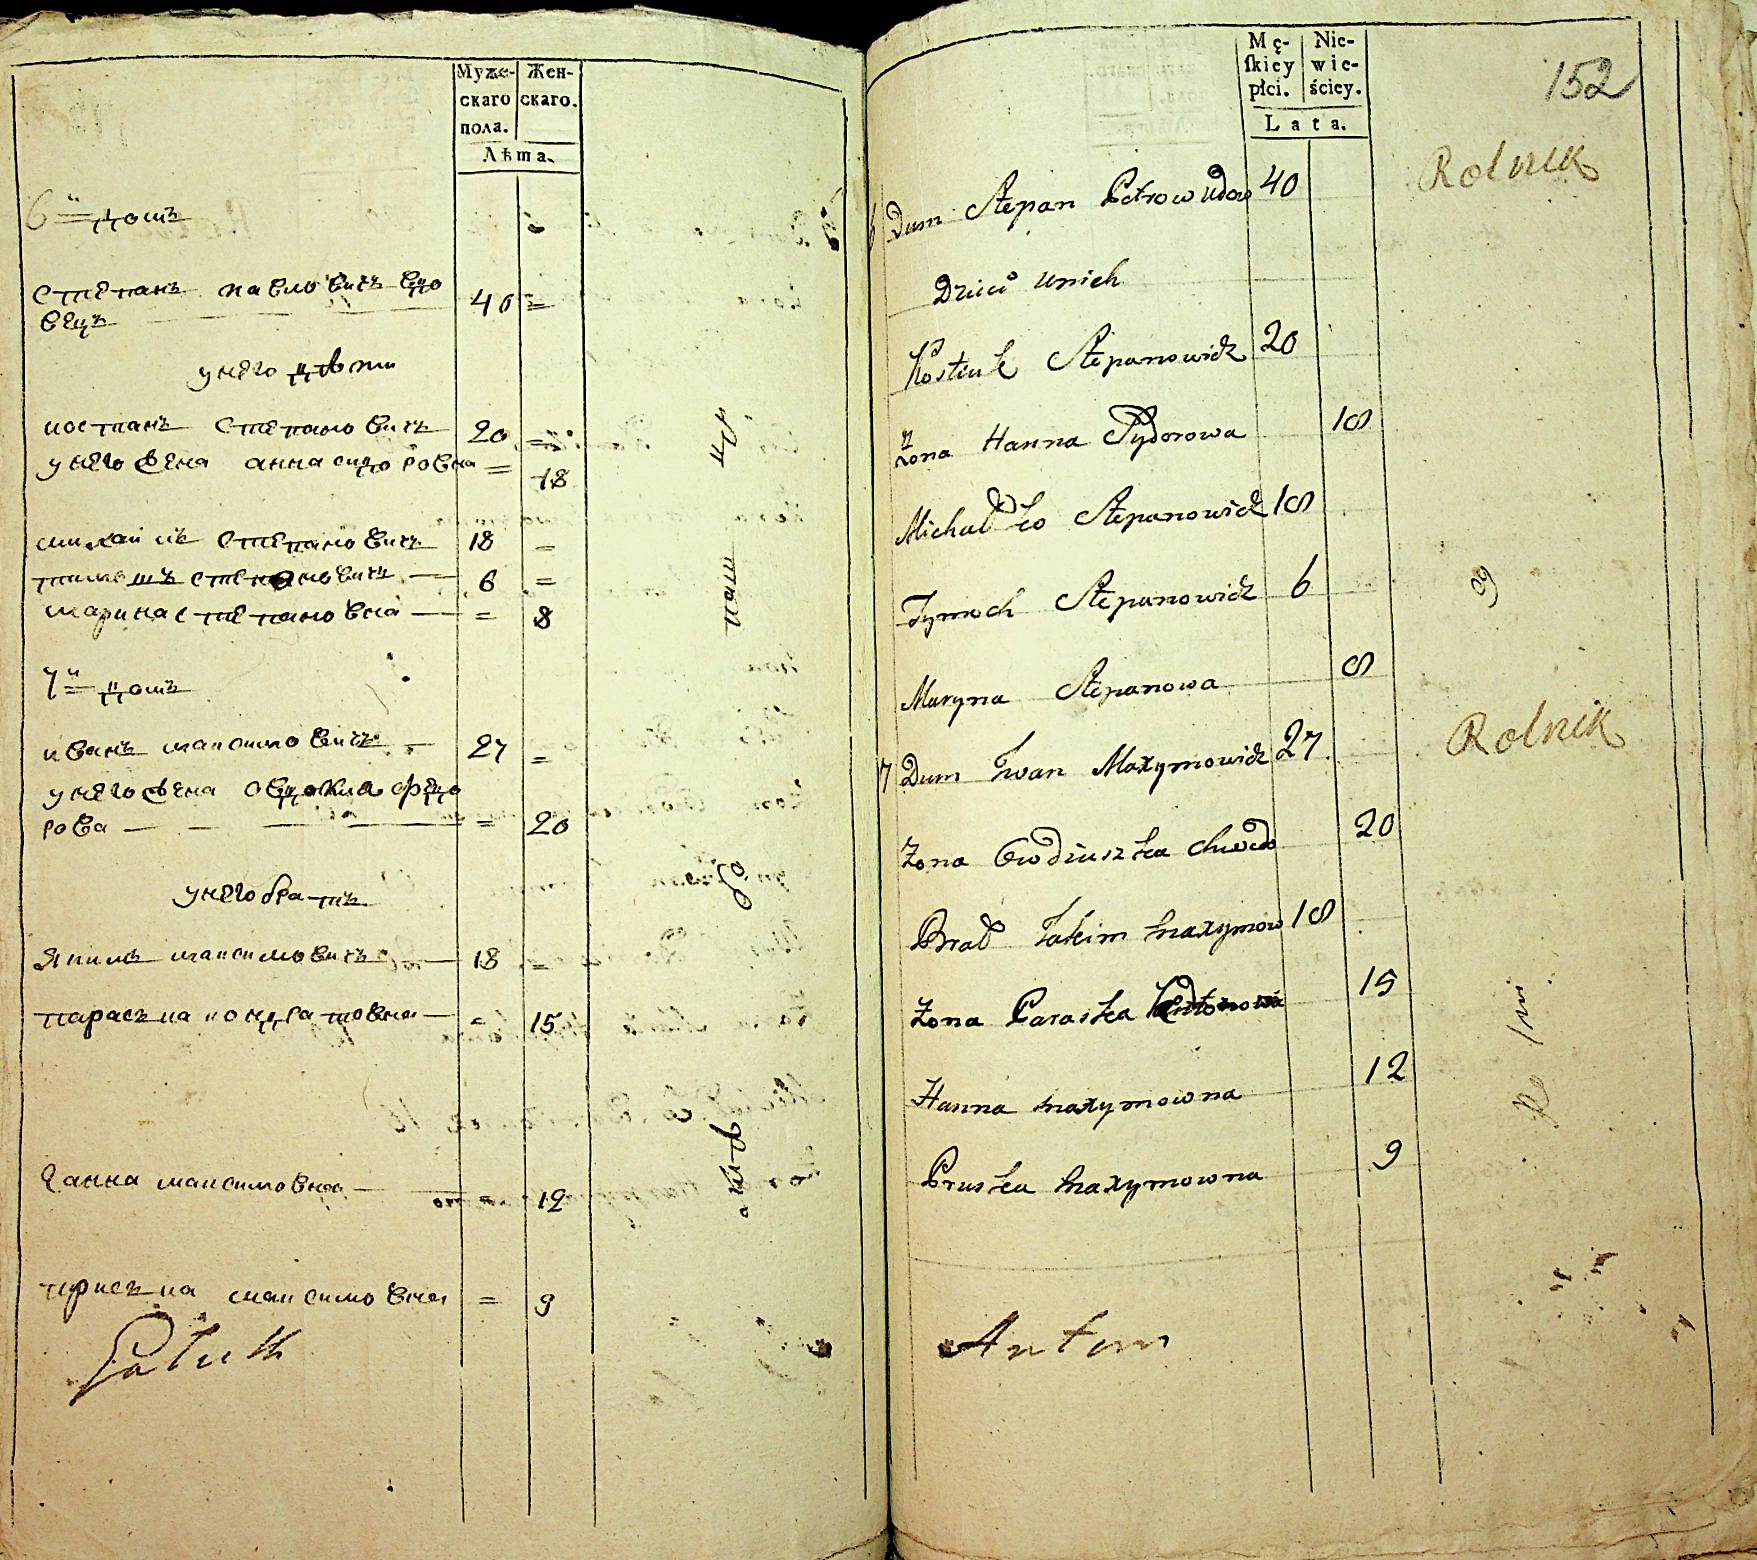 Муже-
скаго
пола.
Жен-
скаго.
Лѣта.
6й домъ
степанъ павловичъ вдо
вецъ 40 =
унего дѣти
костанъ степановичъ 20 =
унего жена анна сидоровна = 18
михайло степановичъ 18 =
тимошъ степановичъ 6 =
марина степановна = 8
7й домъ
иванъ максимовичъ 27 =
унего жена овдокиа федо
рова = 20
унего братъ
якимъ максимовичъ 18 =
параська кондратовна = 15
ганна максимовна = 12
приська максимовна = 9
152
Mę-
skiey
płci.
Nie-
wie-
ściey.
Lata.
6 Dum Stepan Petrow Udow 40
Rolnik
Dzieci unich
Kostiuk Stepanowicz 20
Żona Hanna Sydorowa 18
Michałko Stepanowicz 18
Tymoch Stepanowicz 6
Maryna Stepanowa 8
7 Dum Iwan Maxymowicz 27
Rolnik
Żona Owdiuszka Chwedo 20
Brat Jakim Maxymow 18
Żona Paraska 15
Hanna Maxymowna 12
Pruska Maxymowna 9
Anton